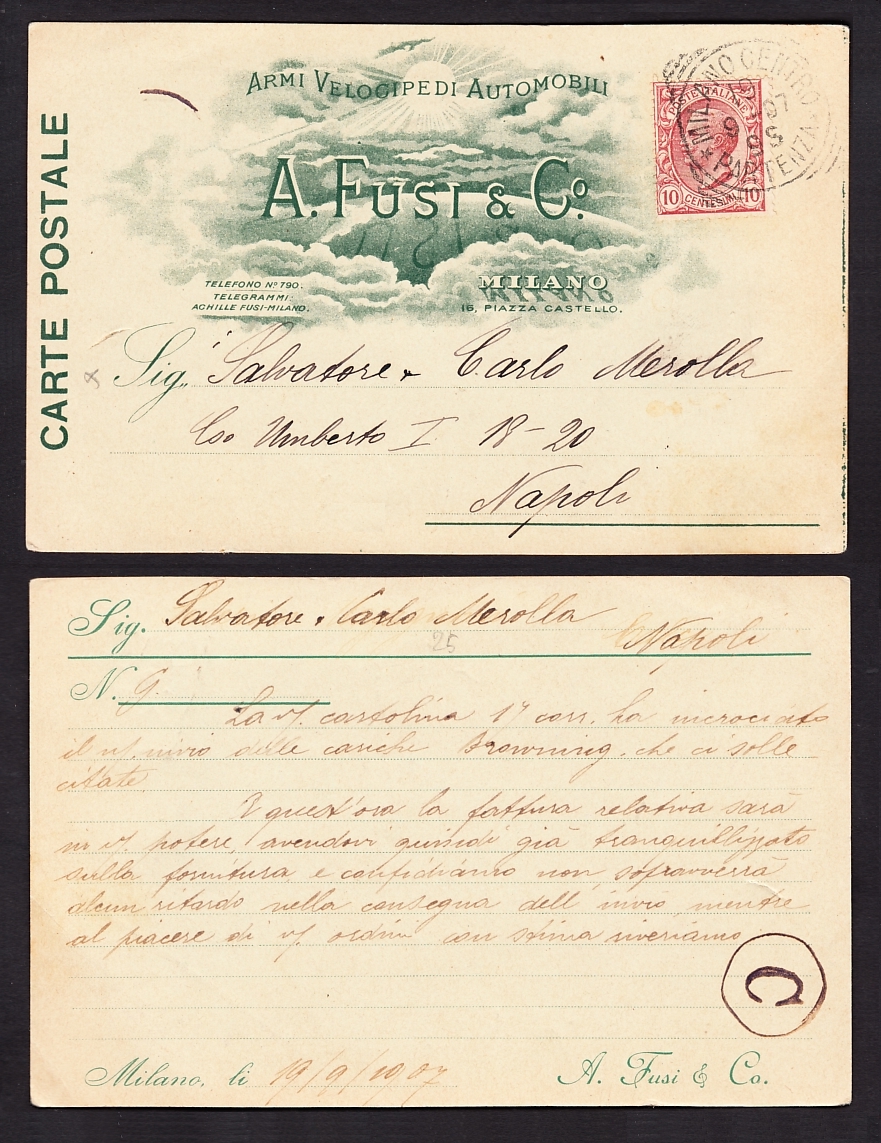 CARTE POSTALE
ARMI VELOCIPEDI AUTOMOBILI
A. FUSI & Co.
TELEFONO No 790.
TELEGRAMMI:
ACHILLE FUSI-MILANO.
MILANO
16, PIAZZA CASTELLO.
POSTE ITALIANE
10 CENTESIMI 10
MILANO CENTRO
* PARTENZA
Sig. Salvatore & Carlo Merolla
Cso Umberto I 18-20
Napoli
Sig. Salvatore & Carlo Merolla
25
Napoli
N. G.
La v/. cartolina 17 corr. ha incrociato
il n/. invio delle cariche Browning, che ci solle
citate.
A quest'ora la fattura relativa sarà
in v/. potere, avendovi quindi già tranquillizzato
sulla fornitura e confidiamo non sopravverrà
alcun ritardo nella consegna dell'invio, mentre
al piacere di v/. ordini con stima riveriamo
C
Milano, li 19/9/1907
A. Fusi & Co.